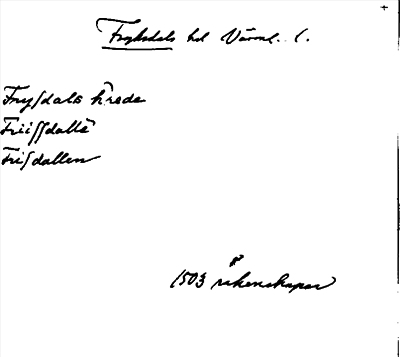 Fryksdals hd Värml. l.
Fryſdals härede
Friiſſdallä
Friſdallen
1503 räkenskaper